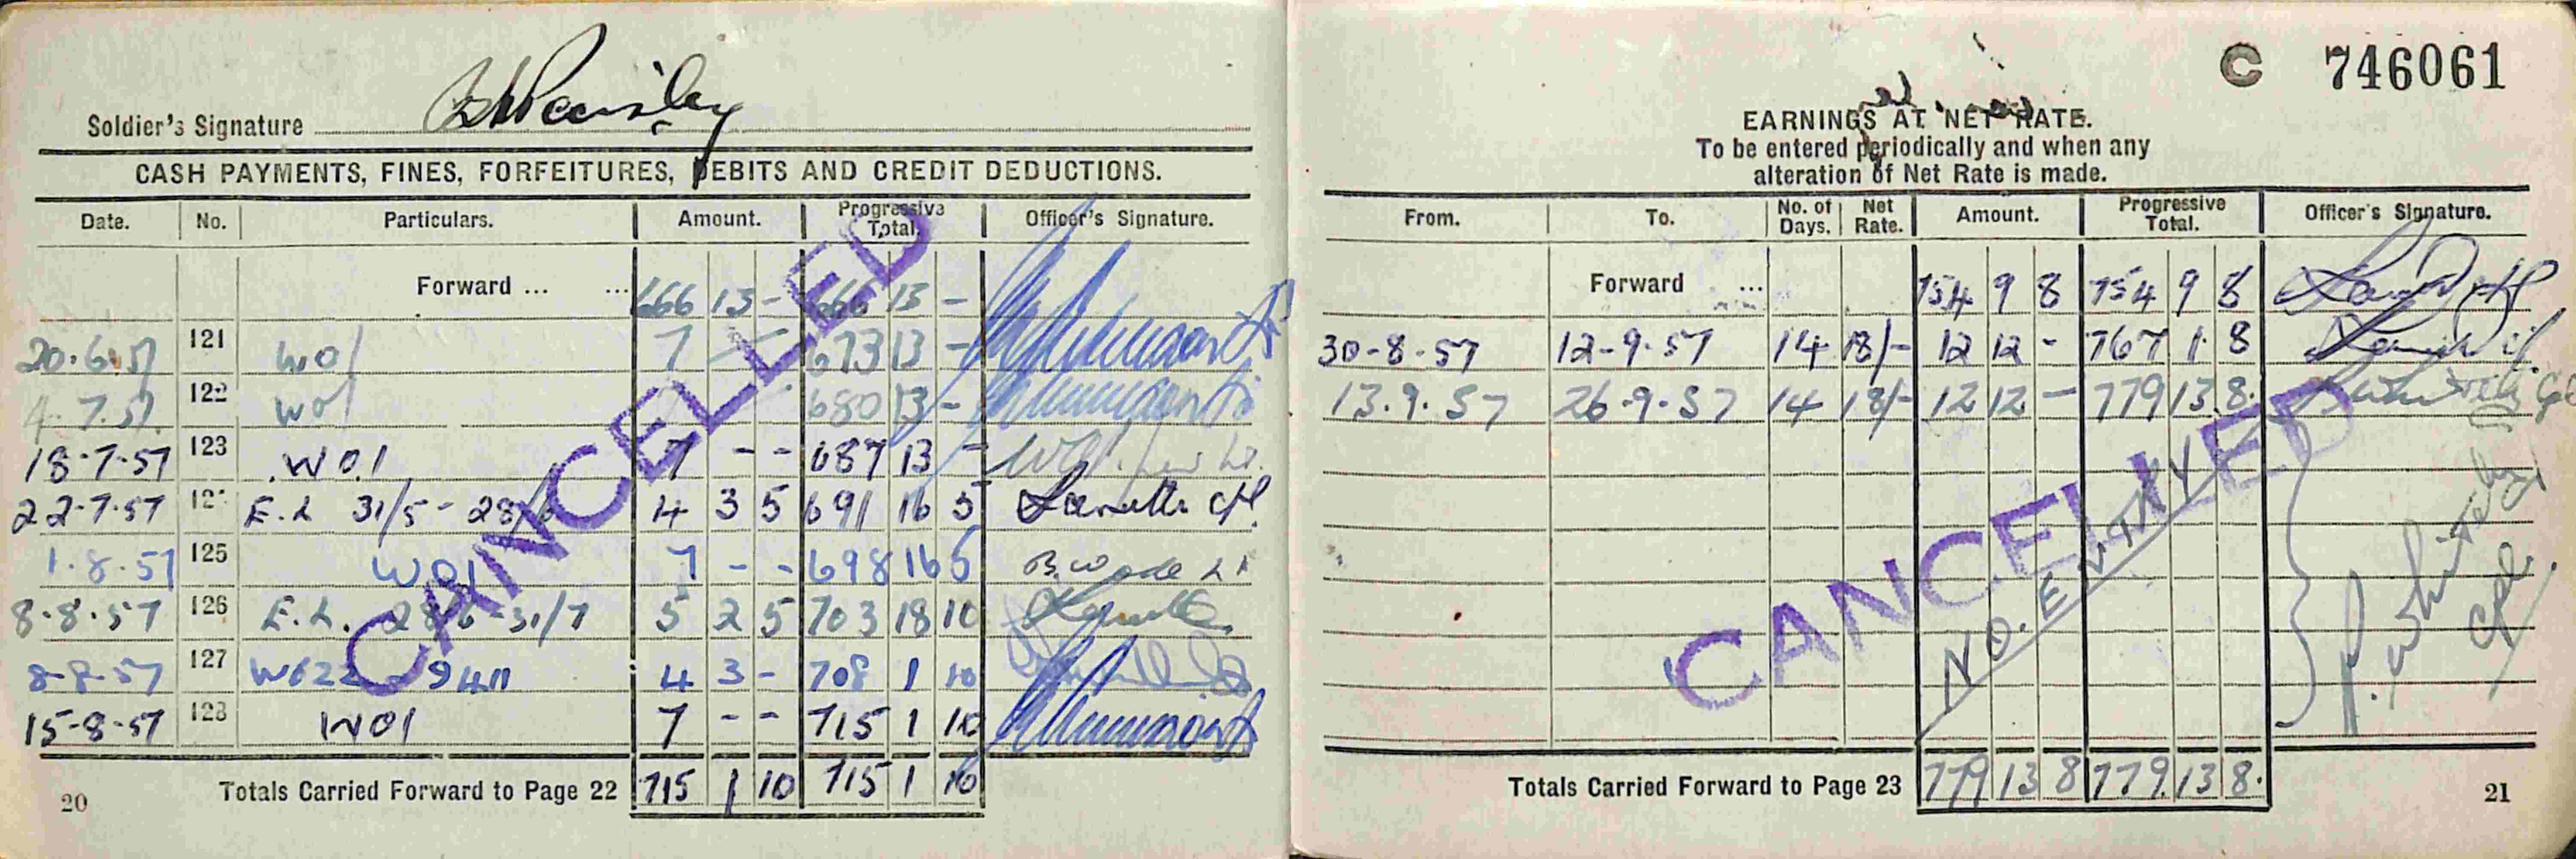 Soldier's Signature
CASH PAYMENTS, FINES, FORFEITURES, DEBITS AND CREDIT DEDUCTIONS.
Date. No. Particulars. Amount. Progressive Total. Officer's Signature.
Forward ... ... 666 13 - 666 13 -
20.6.57 121 W01 7 673 13 -
4.7.57. 122 W01 680 13 -
18-7-57 123 W01 7 - - 687 13 -
22-7-57 E.L 31/5 - 28/6 4 3 5 691 16 5
1.8.57 125 W01 7 - - 698 16 5 B. Wade Lt
8-8-57 126 E.L. 28/6 - 31/7 5 2 5 703 18 10
8-8-57 127 W622 9411 4 3 - 708 1 10
15-8-57 128 W01 7 - - 715 1 10
Totals Carried Forward to Page 22 715 1 10 715 1 10
20
CANCELLED
C 746061
EARNINGS AT NET RATE.
To be entered periodically and when any
alteration of Net Rate is made.
From. To. No. of Days. Net Rate. Amount. Progressive Total. Officer's Signature.
Forward ... 754 9 8 754 9 8
30-8-57 12-9-57 14 18/- 12 12 - 767 1 8
13.9.57 26.9.57 14 18/- 12 12 - 779 13 8.
NO. ENTRY
CANCELLED
Cpl.
Totals Carried Forward to Page 23 779 13 8 779 13 8.
21